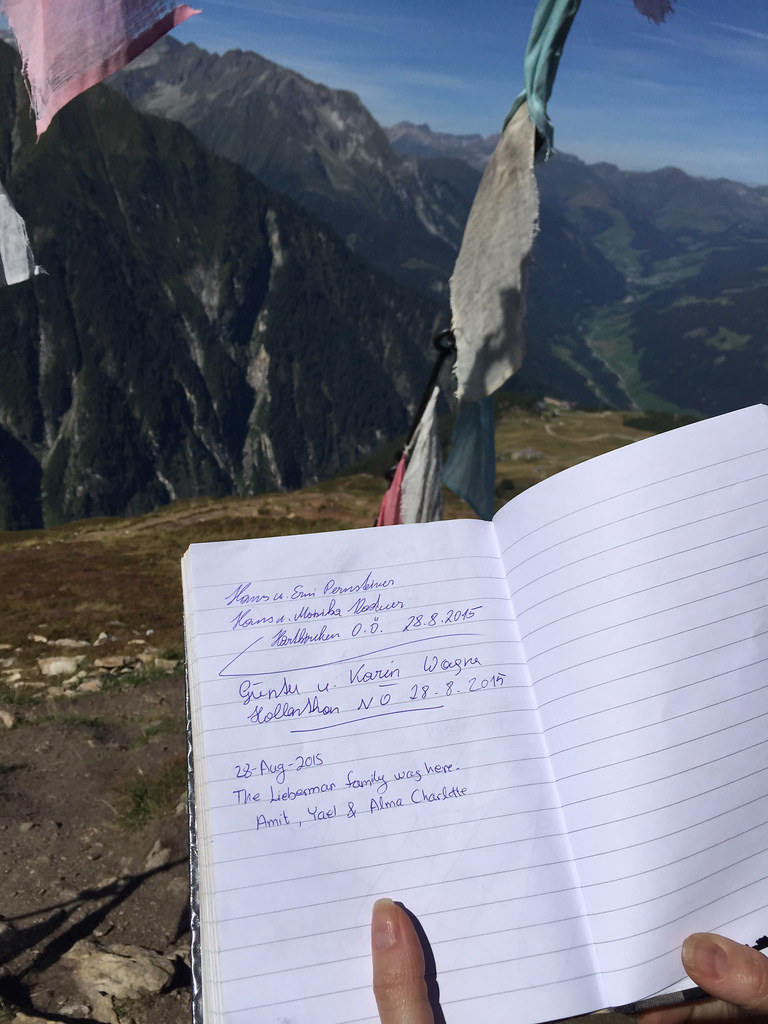 Hans u. Erni Pernsteiner
Hans u. Monika
O.Ö. 28.8.2015
Günter u. Karin Wagner
Hollenthon NÖ 28.8.2015
28-Aug-2015
The Lieberman family was here.
Amit, Yael & Alma Charlotte